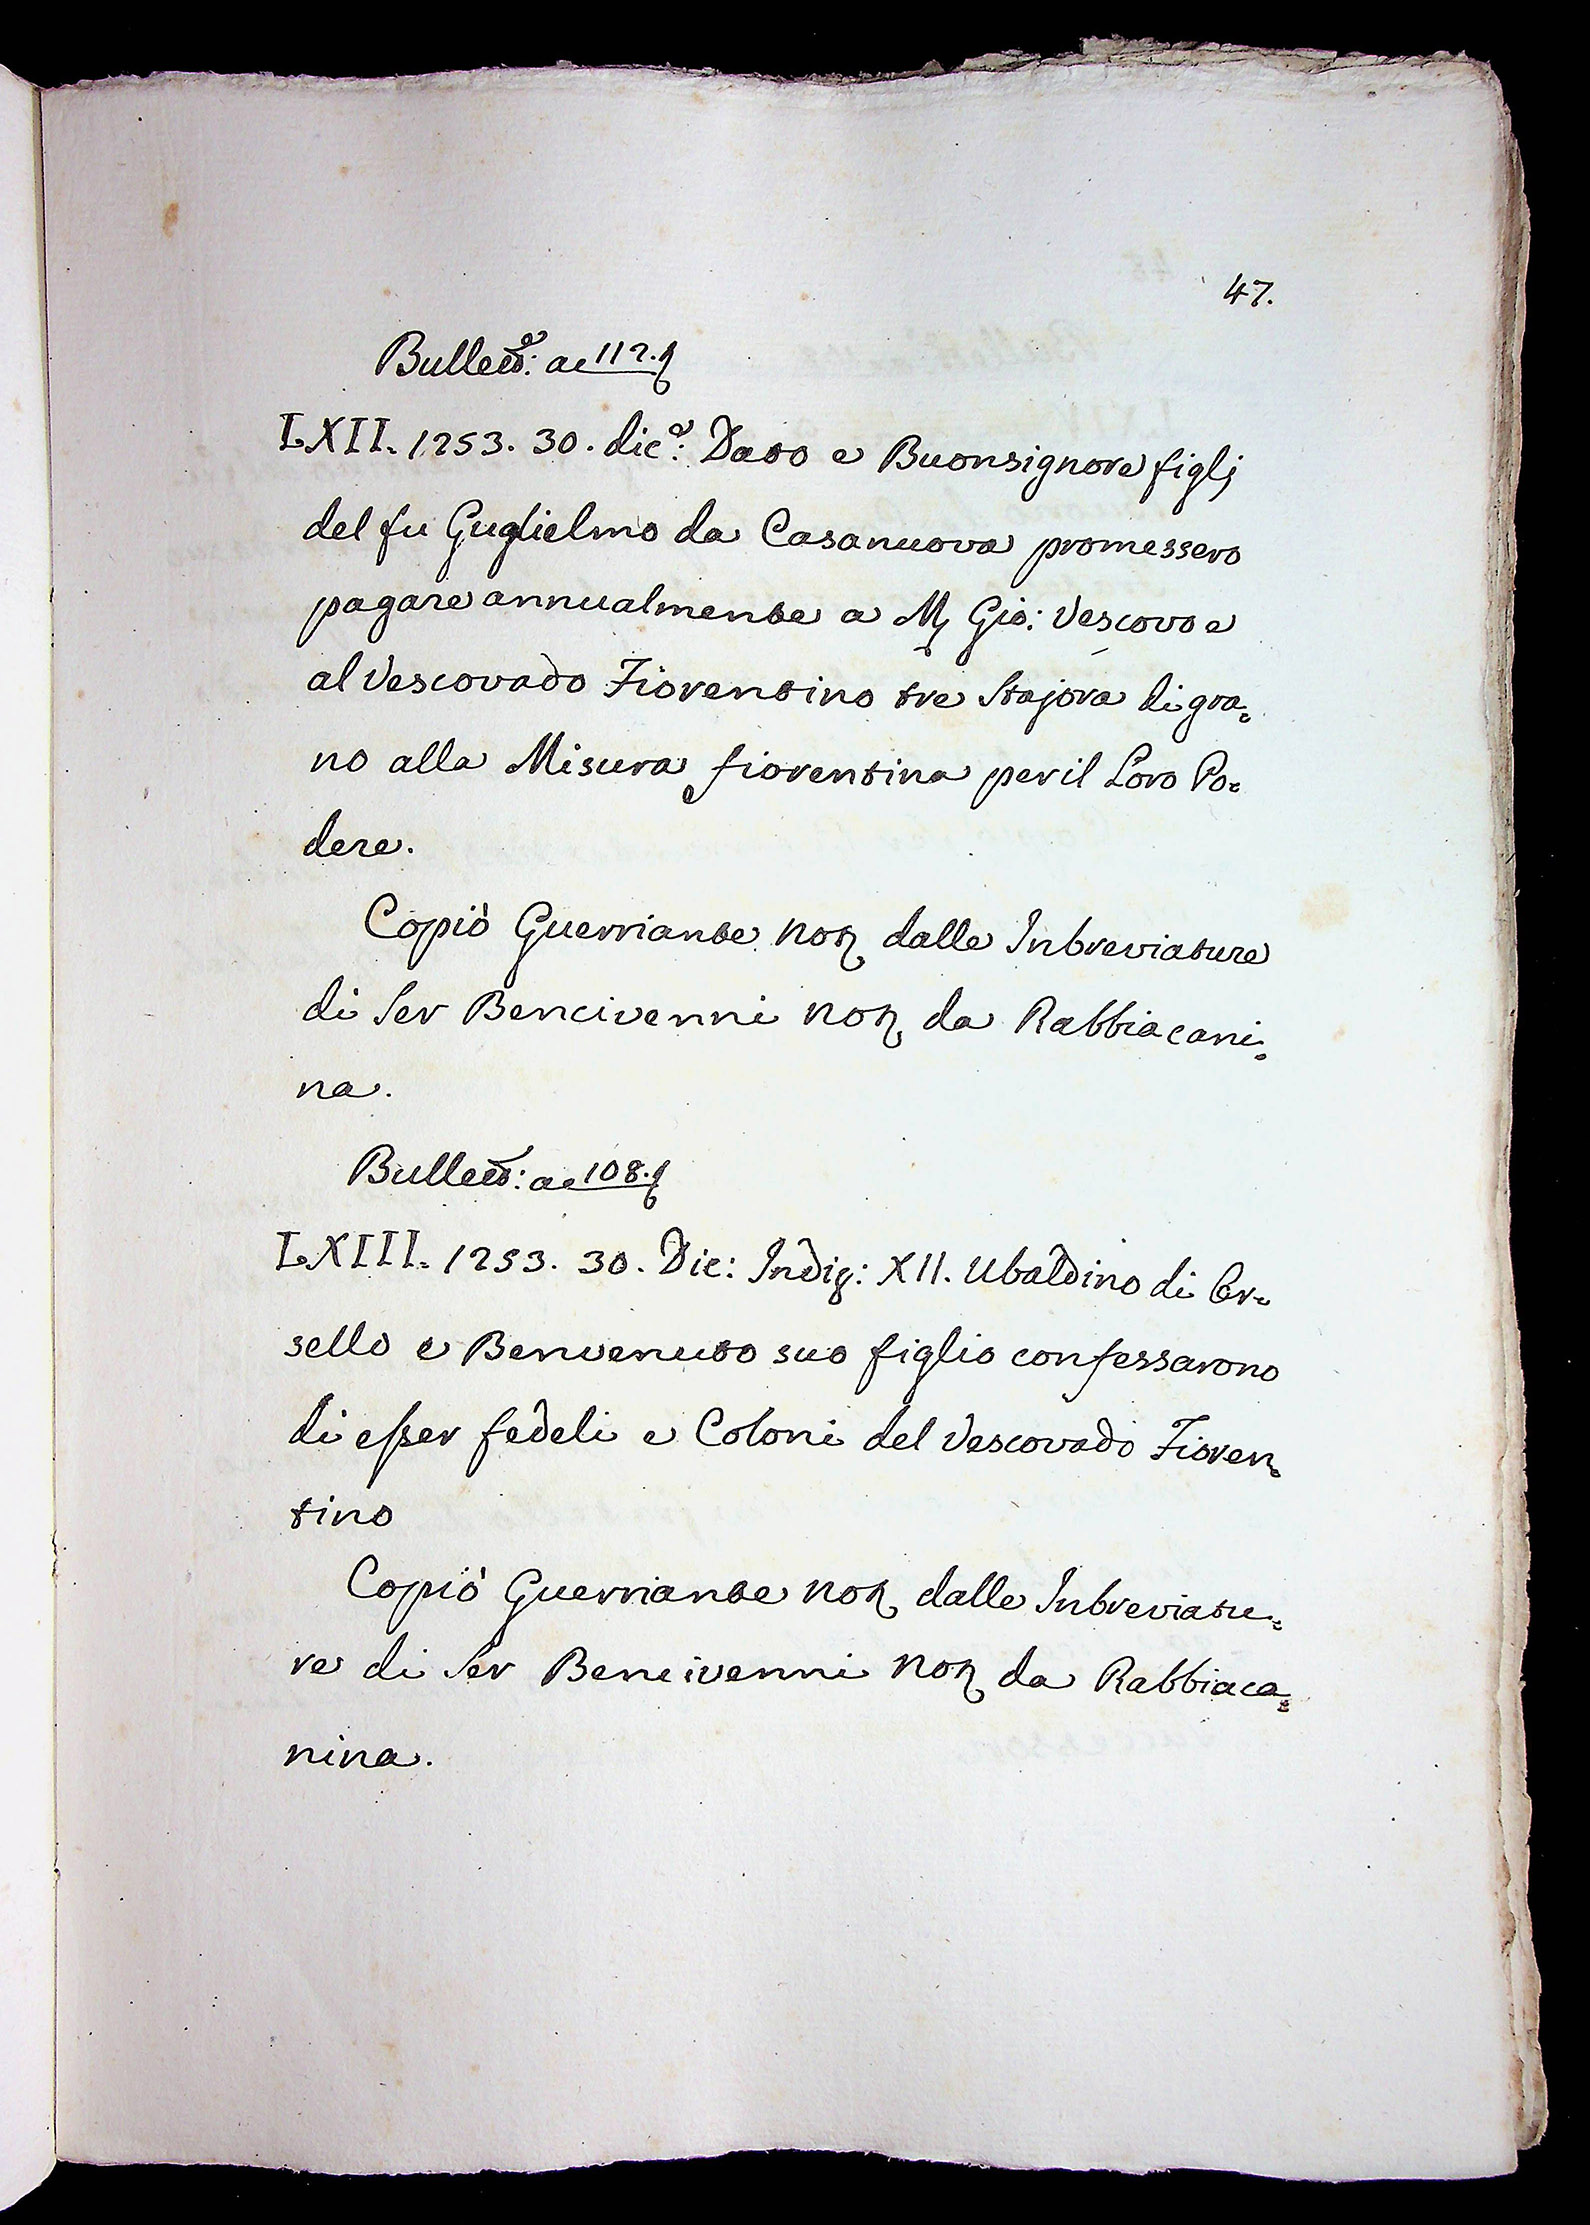 47.
Bullett: a c 112.
LXII. 1253. 30. dic: Dato e Buonsignore figlj
del fu Guglielmo da Casanuova promessero
pagare annualmente a M Gio: Vescovo e
al Vescovado Fiorentino tre Stajora di gra=
no alla Misura fiorentina per il Loro Po=
dere.
Copiò Guerriante Not dalle Inbreviature
di Ser Bencivenni Not da Rabbiacani=
na.
Bullett: a c 108.
LXIII. 1253. 30. Dic: Indiz: XII. Ubaldino di Or=
sello e Benvenuto suo figlio confessarono
di esser fedeli e Coloni del Vescovado Fioren=
tino
Copiò Guerriante Not dalle Inbreviatu=
re di Ser Bencivenni Not da Rabbiaca=
nina.